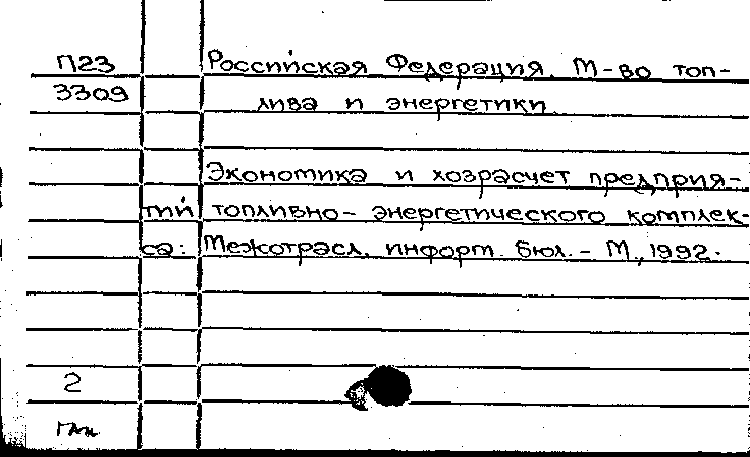 П23 Российская Федерация. М-во топ-
3309 лива и энергетики
Экономика и хозрасчет предприя-
тий топливно-энергетического комплек-
са: Межотрасл. информ. бюл. - М., 1992.
2